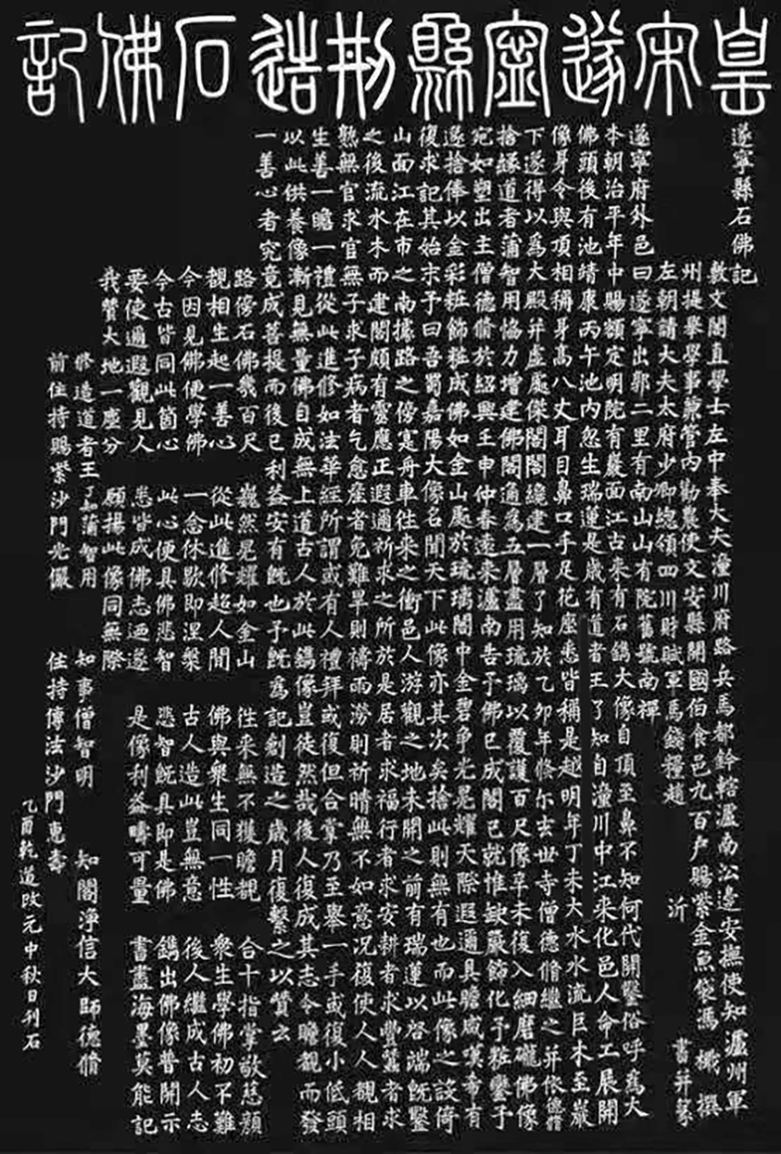 皇宋遂寧縣刱造石佛記
遂寧縣石佛記
敷文閣直學士左中奉大夫潼川府路兵馬都鈐轄瀘南沿邊安撫使知瀘州軍
州提舉學事兼管內勸農使文安縣開國伯食邑九百户賜紫金魚袋馮 檝 撰
左朝請大夫太府少卿總領四川財賦軍馬錢糧趙 沂 書并篆
遂寧府外邑曰遂寧出郭二里有南山山有院舊號南禪
本朝治平年中賜額定明院有巖面江古来有石鐫大像自頂至鼻不知何代開鑿俗呼為大
佛頭後有池靖康丙午池內忽生瑞蓮是歲有道者王了知自潼川中江来化邑人命工展開
像身令與頂相稱身高八丈耳目鼻口手足花座悉皆稱是越明年丁未大水水流巨木至巖
下遂得以為大殿并虛處傑閣閣纔建一層了知於乙卯年倏尓去世寺僧德脩繼之并依德脩
捨緣道者蒲智用協力增建佛閣通為五層盡用琉璃以覆護百尺像辛未復入細磨礲佛像
宛如塑出主僧德脩於紹興壬申仲春遠来瀘南告予佛已成閣已就惟缺嚴飾化予粧鑾予
遂捨俸以金彩粧飾粧成佛如金山處於琉璃閣中金碧爭光晃耀天際遐邇具瞻咸嘆希有
復求記其始末予曰吾蜀嘉陽大像名聞天下此像亦其次矣捨此則無有也而此像之設倚
山面江在市之南據路之傍寔舟車往来之衝邑人游觀之地未開之前有瑞蓮以啓端旣鑿
之後流水木而建閣頗有靈應正遐邇祈求之所於是居者求福行者求安耕者求豐蠶者求
熟無官求官無子求子病者乞愈產者免難旱則禱雨澇則祈晴無不如意况復使人人覩相
生善一瞻一禮從此進修如法華經所謂或有人禮拜或復但合掌乃至舉一手或復小低頭
以此供養像漸見無量佛自成無上道古人於此鐫像豈徒然哉後人復成其志令瞻覩而發
一善心者究竟成菩提而後已利益安有旣也予旣為記刱造之歲月復繫之以贊云
路傍石佛幾百尺 巍然晃耀如金山 往来無不獲瞻覩 合十指掌敬慈顔
觀相生起一善心 從此進修超人間 佛與衆生同一性 衆生學佛初不難
今因見佛便學佛 一念休歇即涅槃 古人造此豈無意 後人繼成古人志
今古皆同此箇心 此心便具佛悲智 悲智旣具即是佛 鐫出佛像普開示
要使遍遐觀見人 悉皆成佛志迺遂 是像利益疇可量 書盡海墨莫能記
我贊大地一塵分 願揚此像同無際
修造道者王了知蒲智用 知事僧智明 知閣淨信大師德脩
前住持賜紫沙門光儼 住持傳法沙門惠壽
乙酉乾道改元中秋日刊石